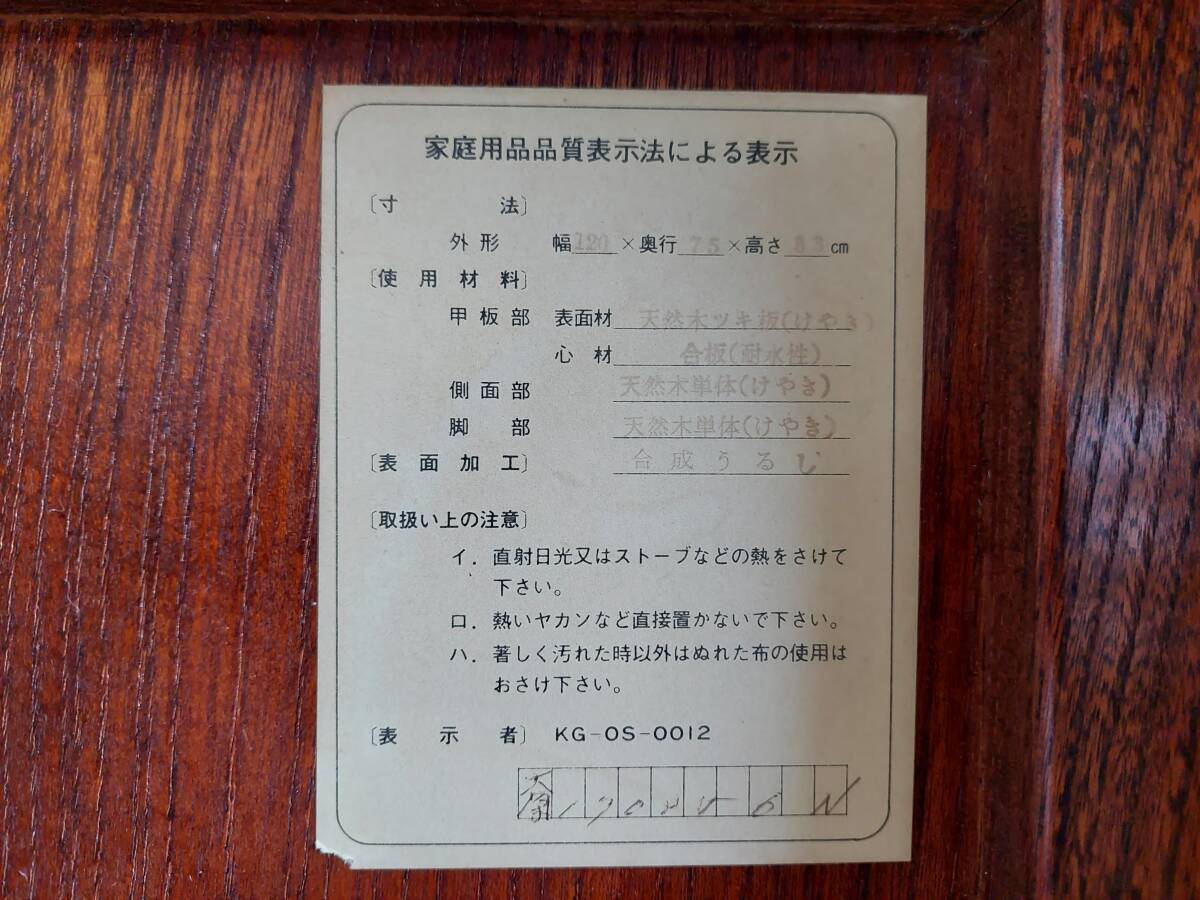 家庭用品品質表示法による表示
〔寸法〕
外形 幅120×奥行75×高さ33cm
〔使用材料〕
甲板部 表面材 天然木ツキ板(けやき)
心材 合板(耐水性)
側面部 天然木単体(けやき)
脚部 天然木単体(けやき)
〔表面加工〕 合成うるし
〔取扱い上の注意〕
イ. 直射日光又はストーブなどの熱をさけて
下さい。
ロ. 熱いヤカンなど直接置かないで下さい。
ハ. 著しく汚れた時以外はぬれた布の使用は
おさけ下さい。
〔表示者〕 KG-OS-0012